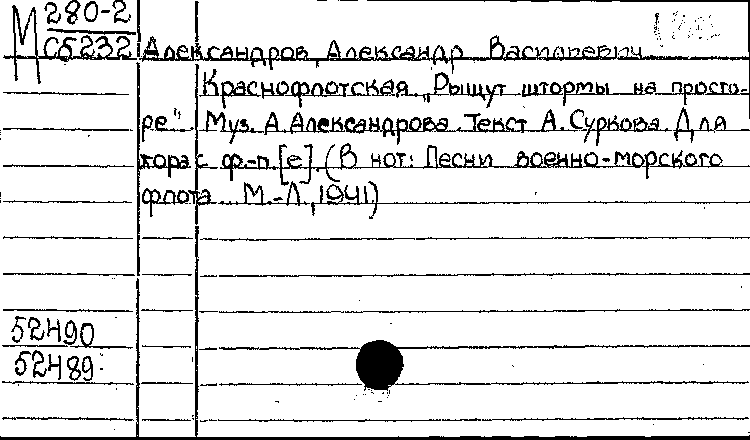 М 280-2
С5232 Александров, Александр Васильевич
Краснофлотская „Рыщут штормы на просто-
ре". Муз. А. Александрова. Текст А. Суркова. Для
хора с ф.-п. [e]. (В нот: Песни военно-морского
флота... М.-Л., 1941)
52490
52489